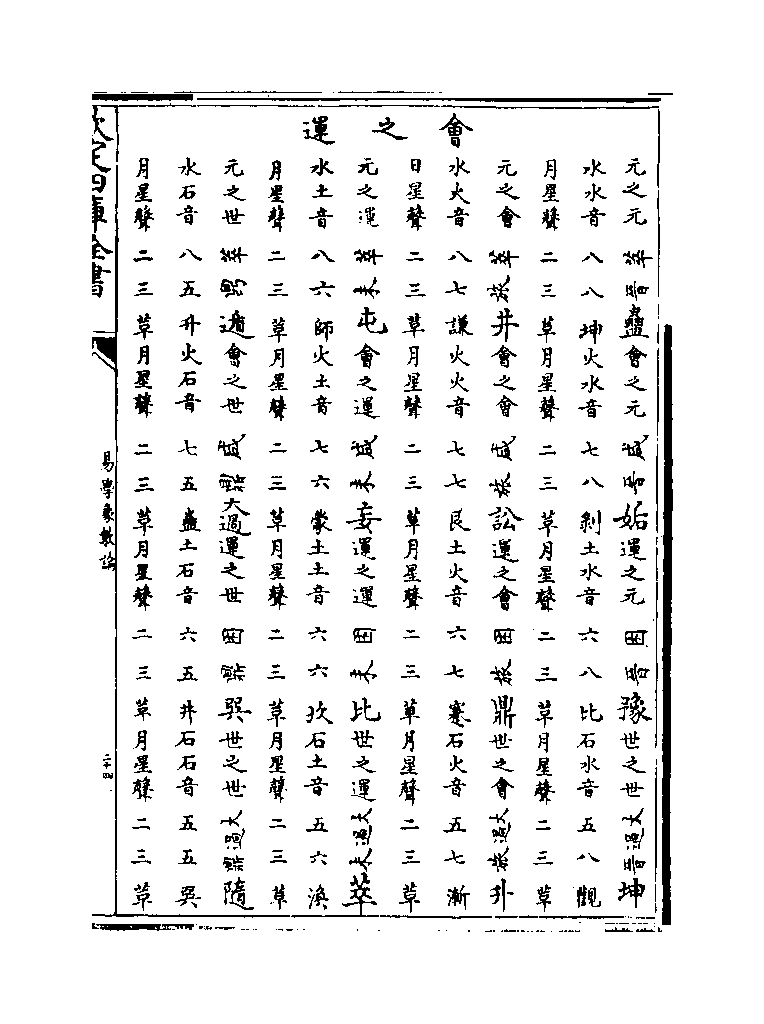 會之運
元之元萃晉蠱會之元咸晉姤運之元困晉豫世之世大過晉坤
水水音八八坤火水音七八剝土水音六八比石水音五八觀
月星聲二三革月星聲二三革月星聲二三革月星聲二三革
元之會萃旅井會之會咸旅訟運之會困旅鼎世之會大過旅升
水火音八七謙火火音七七艮土火音六七蹇石火音五七漸
日星聲二三革月星聲二三革月星聲二三革月星聲二三革
元之運萃未屯會之運咸未妄運之運困未比世之運大過未萃
水土音八六師火土音七六蒙土土音六六坎石土音五六渙
月星聲二三革月星聲二三革月星聲二三革月星聲二三革
元之世萃鼎遯會之世咸鼎大過運之世困鼎巽世之世大過鼎隨
水石音八五升火石音七五蠱土石音六五井石石音五五巽
月星聲二三革月星聲二三革月星聲二三革月星聲二三革
欽定四庫全書
易學象數論
二十四